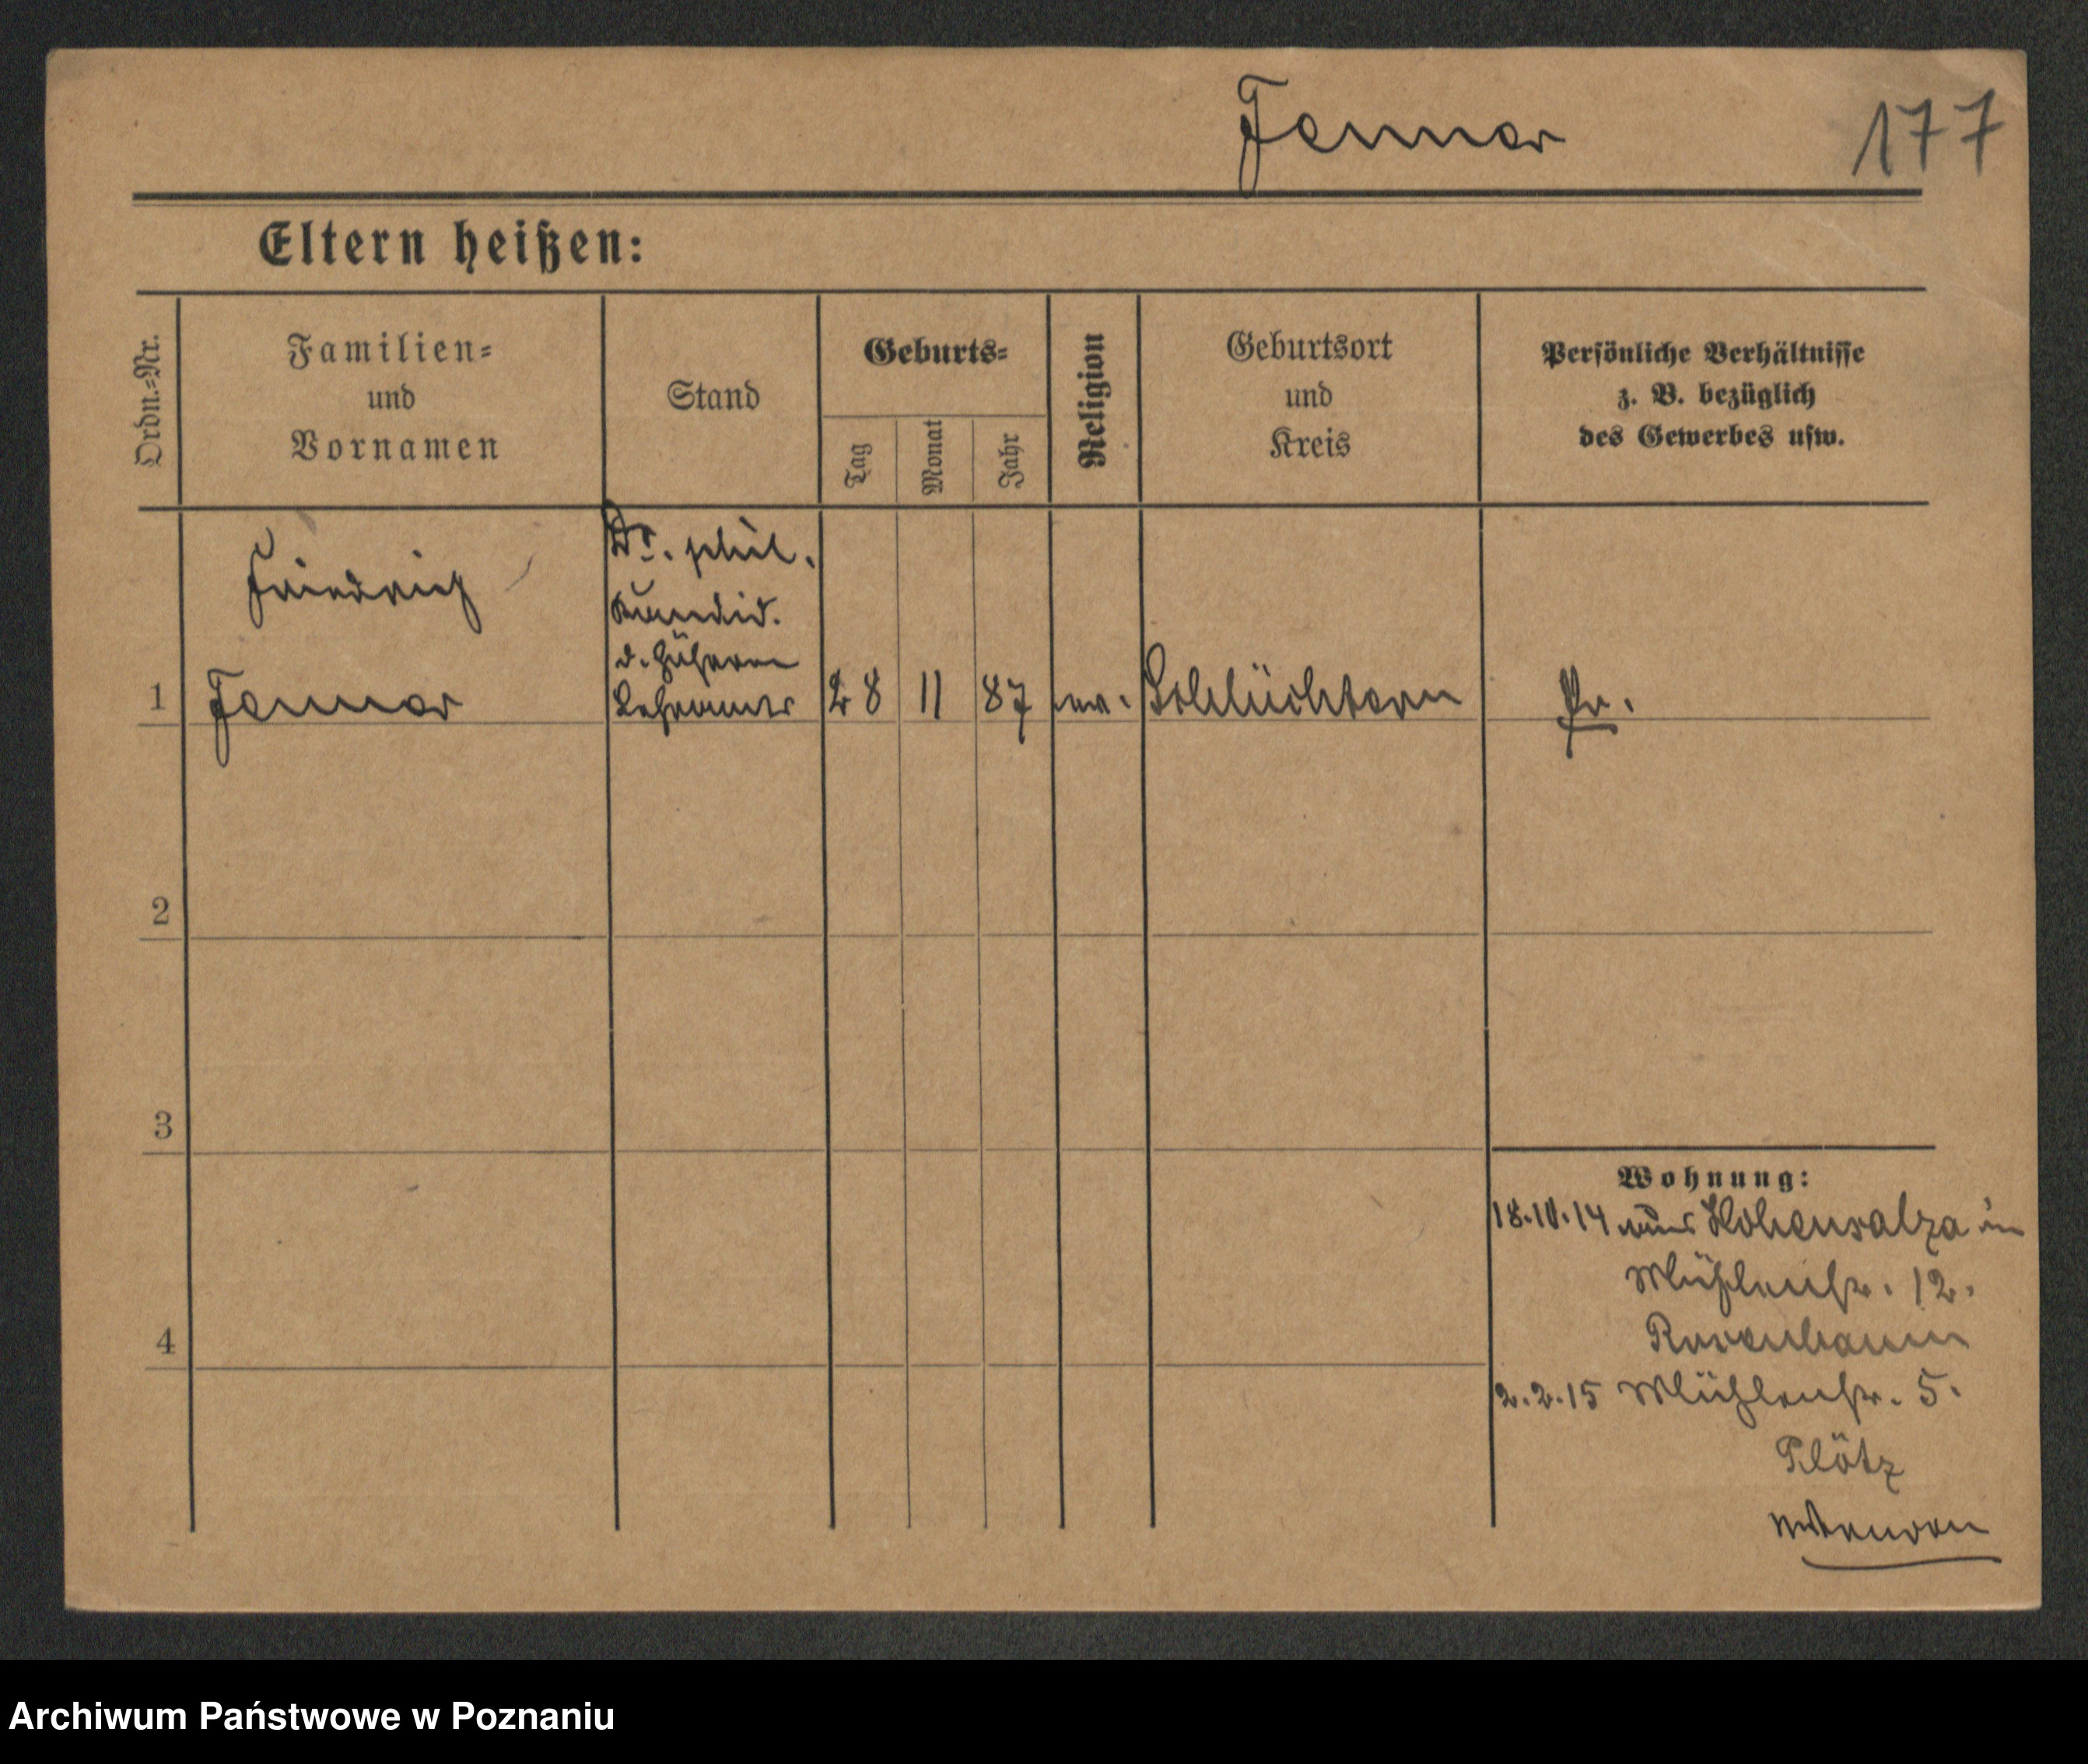 Fenner
177
Eltern heißen:
Ordn.-Nr.
Familien-
und
Vornamen
Stand
Geburts-
Tag
Monat
Jahr
Religion
Geburtsort
und
Kreis
Persönliche Verhältnisse
z. B. bezüglich
des Gewerbes usw.
Friedrich
Dr. phil.
Kandid.
d. höheren
Lehramts
1
Fenner
28
11
87
ev.
Schlüchtern
Pr.
2
3
4
Wohnung:
18.10.14 aus Hohensalza in
Mühlenstr. 12.
Rosenbaum
2.2.15 Mühlenstr. 5.
Plötz